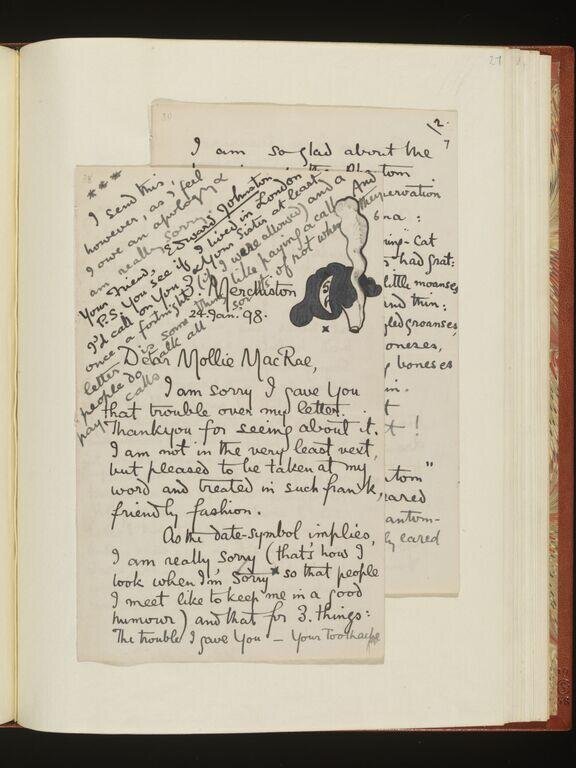 27
30
2.
7
I am so glad about the
ring-Cat
had grat:
little moanses
and thin:
groanses,
boneses
eared
antom-
eared
* * *
I send this,
however, as I feel
I owe an apology &
am really sorry.
Your Friend, Edward Johnston
P.S. You see if I lived in London
I'd call on You & Your Sister at least
once a fortnight (if I were allowed) and a
letter is something like paying a call. And
people do talk all sorts of rot when they
pay calls
Merchiston
24. Jan. 98.
Dear Mollie MacRae,
I am sorry I gave You
that trouble over my letter.
Thankyou for seeing about it.
I am not in the very least vext,
but pleased to be taken at my
word and treated in such frank,
friendly fashion.
As the date-symbol implies,
I am really, sorry (that's how I
look when I'm Sorry * so that people
I meet like to keep me in a good
humour) and that for 3. things:
The trouble I gave You — Your Toothache